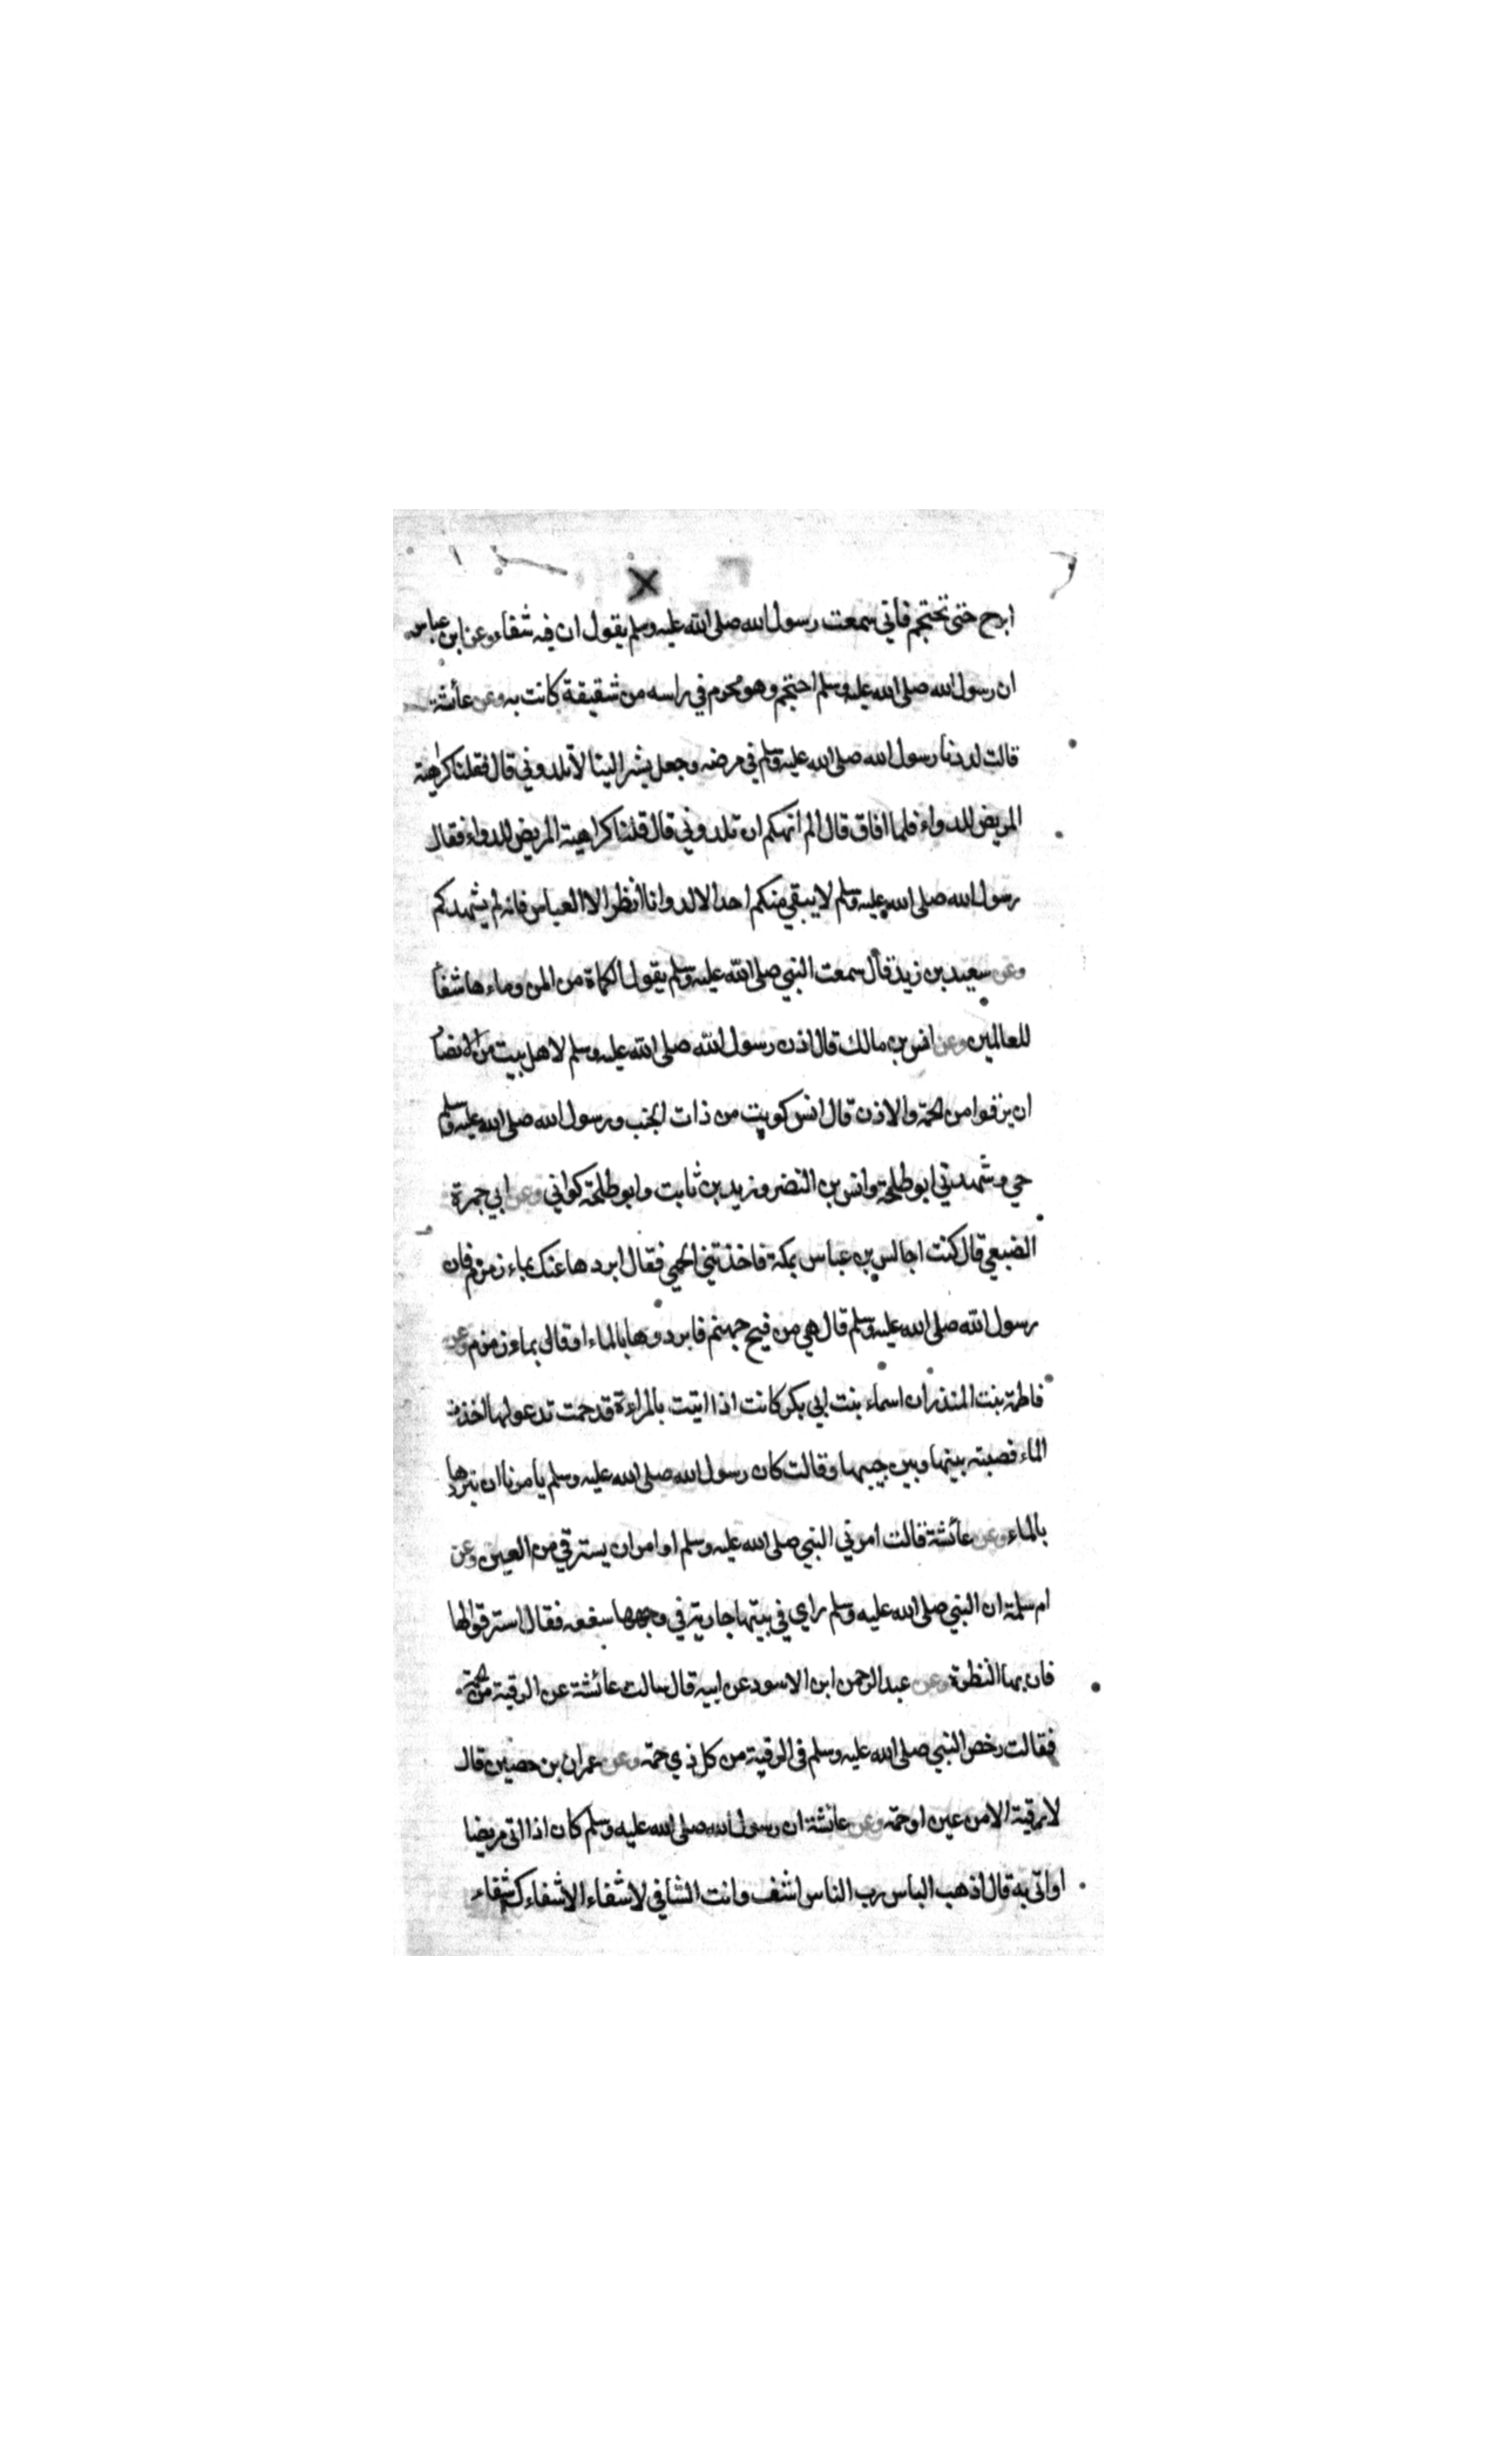 ابرح حتى تحتجم فاني سمعت رسول الله صلى الله عليه وسلم يقول ان فيه شفاء وعن ابن عباس
ان رسول الله صلى الله عليه وسلم احتجم وهو محرم في راسه من شقيقة كانت به وعن عائشة
قالت لددنا رسول الله صلى الله عليه وسلم في مرضه وجعل يشير الينا لا تلدوني قال فقلنا كراهية
المريض للدواء فلما افاق قال الم انهكم ان تلدوني قال قلنا كراهية المريض للدواء فقال
رسول الله صلى الله عليه وسلم لا يبقي منكم احد الا لد وانا انظر الا العباس فانه لم يشهدكم
وعن سعيد بن زيد قال سمعت النبي صلى الله عليه وسلم يقول الكماة من المن وماءها شفا
للعالمين وعن انس بن مالك قال اذن رسول الله صلى الله عليه وسلم لاهل بيت من الانصا
ان يرقوا من الحمة والاذن قال انس كويت من ذات الجنب ورسول الله صلى الله عليه وسلم
حي وشهدني ابو طلحة وانس بن النضر وزيد بن ثابت وابو طلحة كواني وعن ابي جمرة
الضبعي قال كنت اجالس بن عباس بمكة فاخذتني الحمي فقال ابردها عنك بماء زمزم فان
رسول الله صلى الله عليه وسلم قال هي من فيح جهنم فابردوها بالماء او قال بماء زمزم وعن
فاطمة بنت المنذر ان اسماء بنت ابي بكر كانت اذا اتيت بالمراة قد حمت تدعو لها اخذت
الماء فصبته بينها وبين جيبها وقالت كان رسول الله صلى الله عليه وسلم يامرنا ان نبردها
بالماء وعن عائشة قالت امرني النبي صلى الله عليه وسلم او امر ان يسترقي من العين وعن
ام سلمة ان النبي صلى الله عليه وسلم راي في بيتها جارية في وجهها سفعه فقال استرقوا لها
فان بها النظرة وعن عبد الرحمن ابن الاسود عن ابيه قال سالت عائشة عن الرقية من الحمة
فقالت رخص النبي صلى الله عليه وسلم في الرقية من كل ذي حمة وعن عمران بن حصين قال
لا رقية الا من عين او حمة وعن عائشة ان رسول الله صلى الله عليه وسلم كان اذا اتى مريضا
او اتى به قال اذهب الباس رب الناس اشف وانت الشافي لا شفاء الا شفاءك شفاء